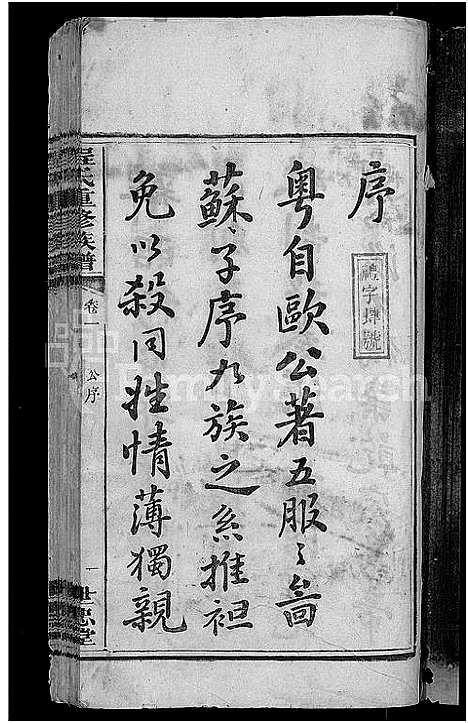 序
禮字肆號
粤自歐公著五服之啚
蘇子序九族之系推袒
免以殺同姓情薄獨親
程氏重修族譜
卷一
公序
一
世忠堂